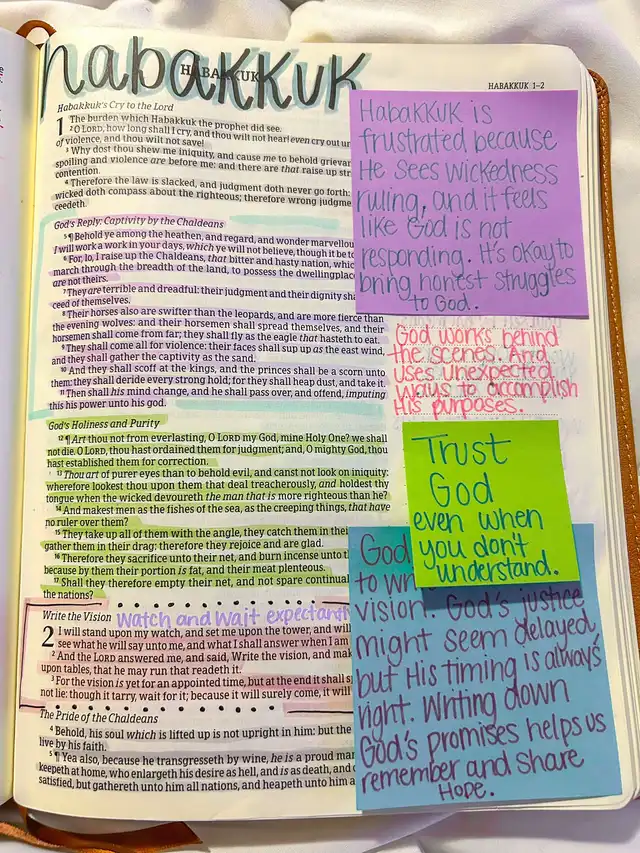 habakkuk
HABAKKUK
HABAKKUK 1–2
Habakkuk's Cry to the Lord
1 The burden which Habakkuk the prophet did see.
2 O LORD, how long shall I cry, and thou wilt not hear! even cry out un
of violence, and thou wilt not save!
3 Why dost thou shew me iniquity, and cause me to behold grievan
spoiling and violence are before me: and there are that raise up str
contention.
4 Therefore the law is slacked, and judgment doth never go forth:
wicked doth compass about the righteous; therefore wrong judgme
ceedeth.
God's Reply: Captivity by the Chaldeans
5 ¶ Behold ye among the heathen, and regard, and wonder marvellou
I will work a work in your days, which ye will not believe, though it be to
6 For, lo, I raise up the Chaldeans, that bitter and hasty nation, which
march through the breadth of the land, to possess the dwellingplac
are not theirs.
7 They are terrible and dreadful: their judgment and their dignity sha
ceed of themselves.
8 Their horses also are swifter than the leopards, and are more fierce than
the evening wolves: and their horsemen shall spread themselves, and their
horsemen shall come from far; they shall fly as the eagle that hasteth to eat.
9 They shall come all for violence: their faces shall sup up as the east wind,
and they shall gather the captivity as the sand.
10 And they shall scoff at the kings, and the princes shall be a scorn unto
them: they shall deride every strong hold; for they shall heap dust, and take it.
11 Then shall his mind change, and he shall pass over, and offend, imputing
this his power unto his god.
God's Holiness and Purity
12 ¶ Art thou not from everlasting, O LORD my God, mine Holy One? we shall
not die. O LORD, thou hast ordained them for judgment; and, O mighty God, thou
hast established them for correction.
13 Thou art of purer eyes than to behold evil, and canst not look on iniquity:
wherefore lookest thou upon them that deal treacherously, and holdest thy
tongue when the wicked devoureth the man that is more righteous than he?
14 And makest men as the fishes of the sea, as the creeping things, that have
no ruler over them?
15 They take up all of them with the angle, they catch them in thei
gather them in their drag: therefore they rejoice and are glad.
16 Therefore they sacrifice unto their net, and burn incense unto t
because by them their portion is fat, and their meat plenteous.
17 Shall they therefore empty their net, and not spare continual
the nations?
Write the Vision Watch and Wait expectantl
2 I will stand upon my watch, and set me upon the tower, and will
see what he will say unto me, and what I shall answer when I am
2 And the LORD answered me, and said, Write the vision, and mak
upon tables, that he may run that readeth it.
3 For the vision is yet for an appointed time, but at the end it shall s
not lie: though it tarry, wait for it; because it will surely come, it will
The Pride of the Chaldeans
4 Behold, his soul which is lifted up is not upright in him: but the
live by his faith.
5 ¶ Yea also, because he transgresseth by wine, he is a proud mar
keepeth at home, who enlargeth his desire as hell, and is as death, and c
satisfied, but gathereth unto him all nations, and heapeth unto him a
Habakkuk is
frustrated because
He sees wickedness
ruling, and it feels
like God is not
responding. It's okay to
bring honest struggles
to God.
God works behind
the scenes. And
uses unexpected
ways to accomplish
His purposes.
Trust
God
even when
you don't
understand.
God
to wr
vision. God's justice
might seem delayed,
but His timing is always
right. Writing down
God's promises helps us
remember and share
Hope.